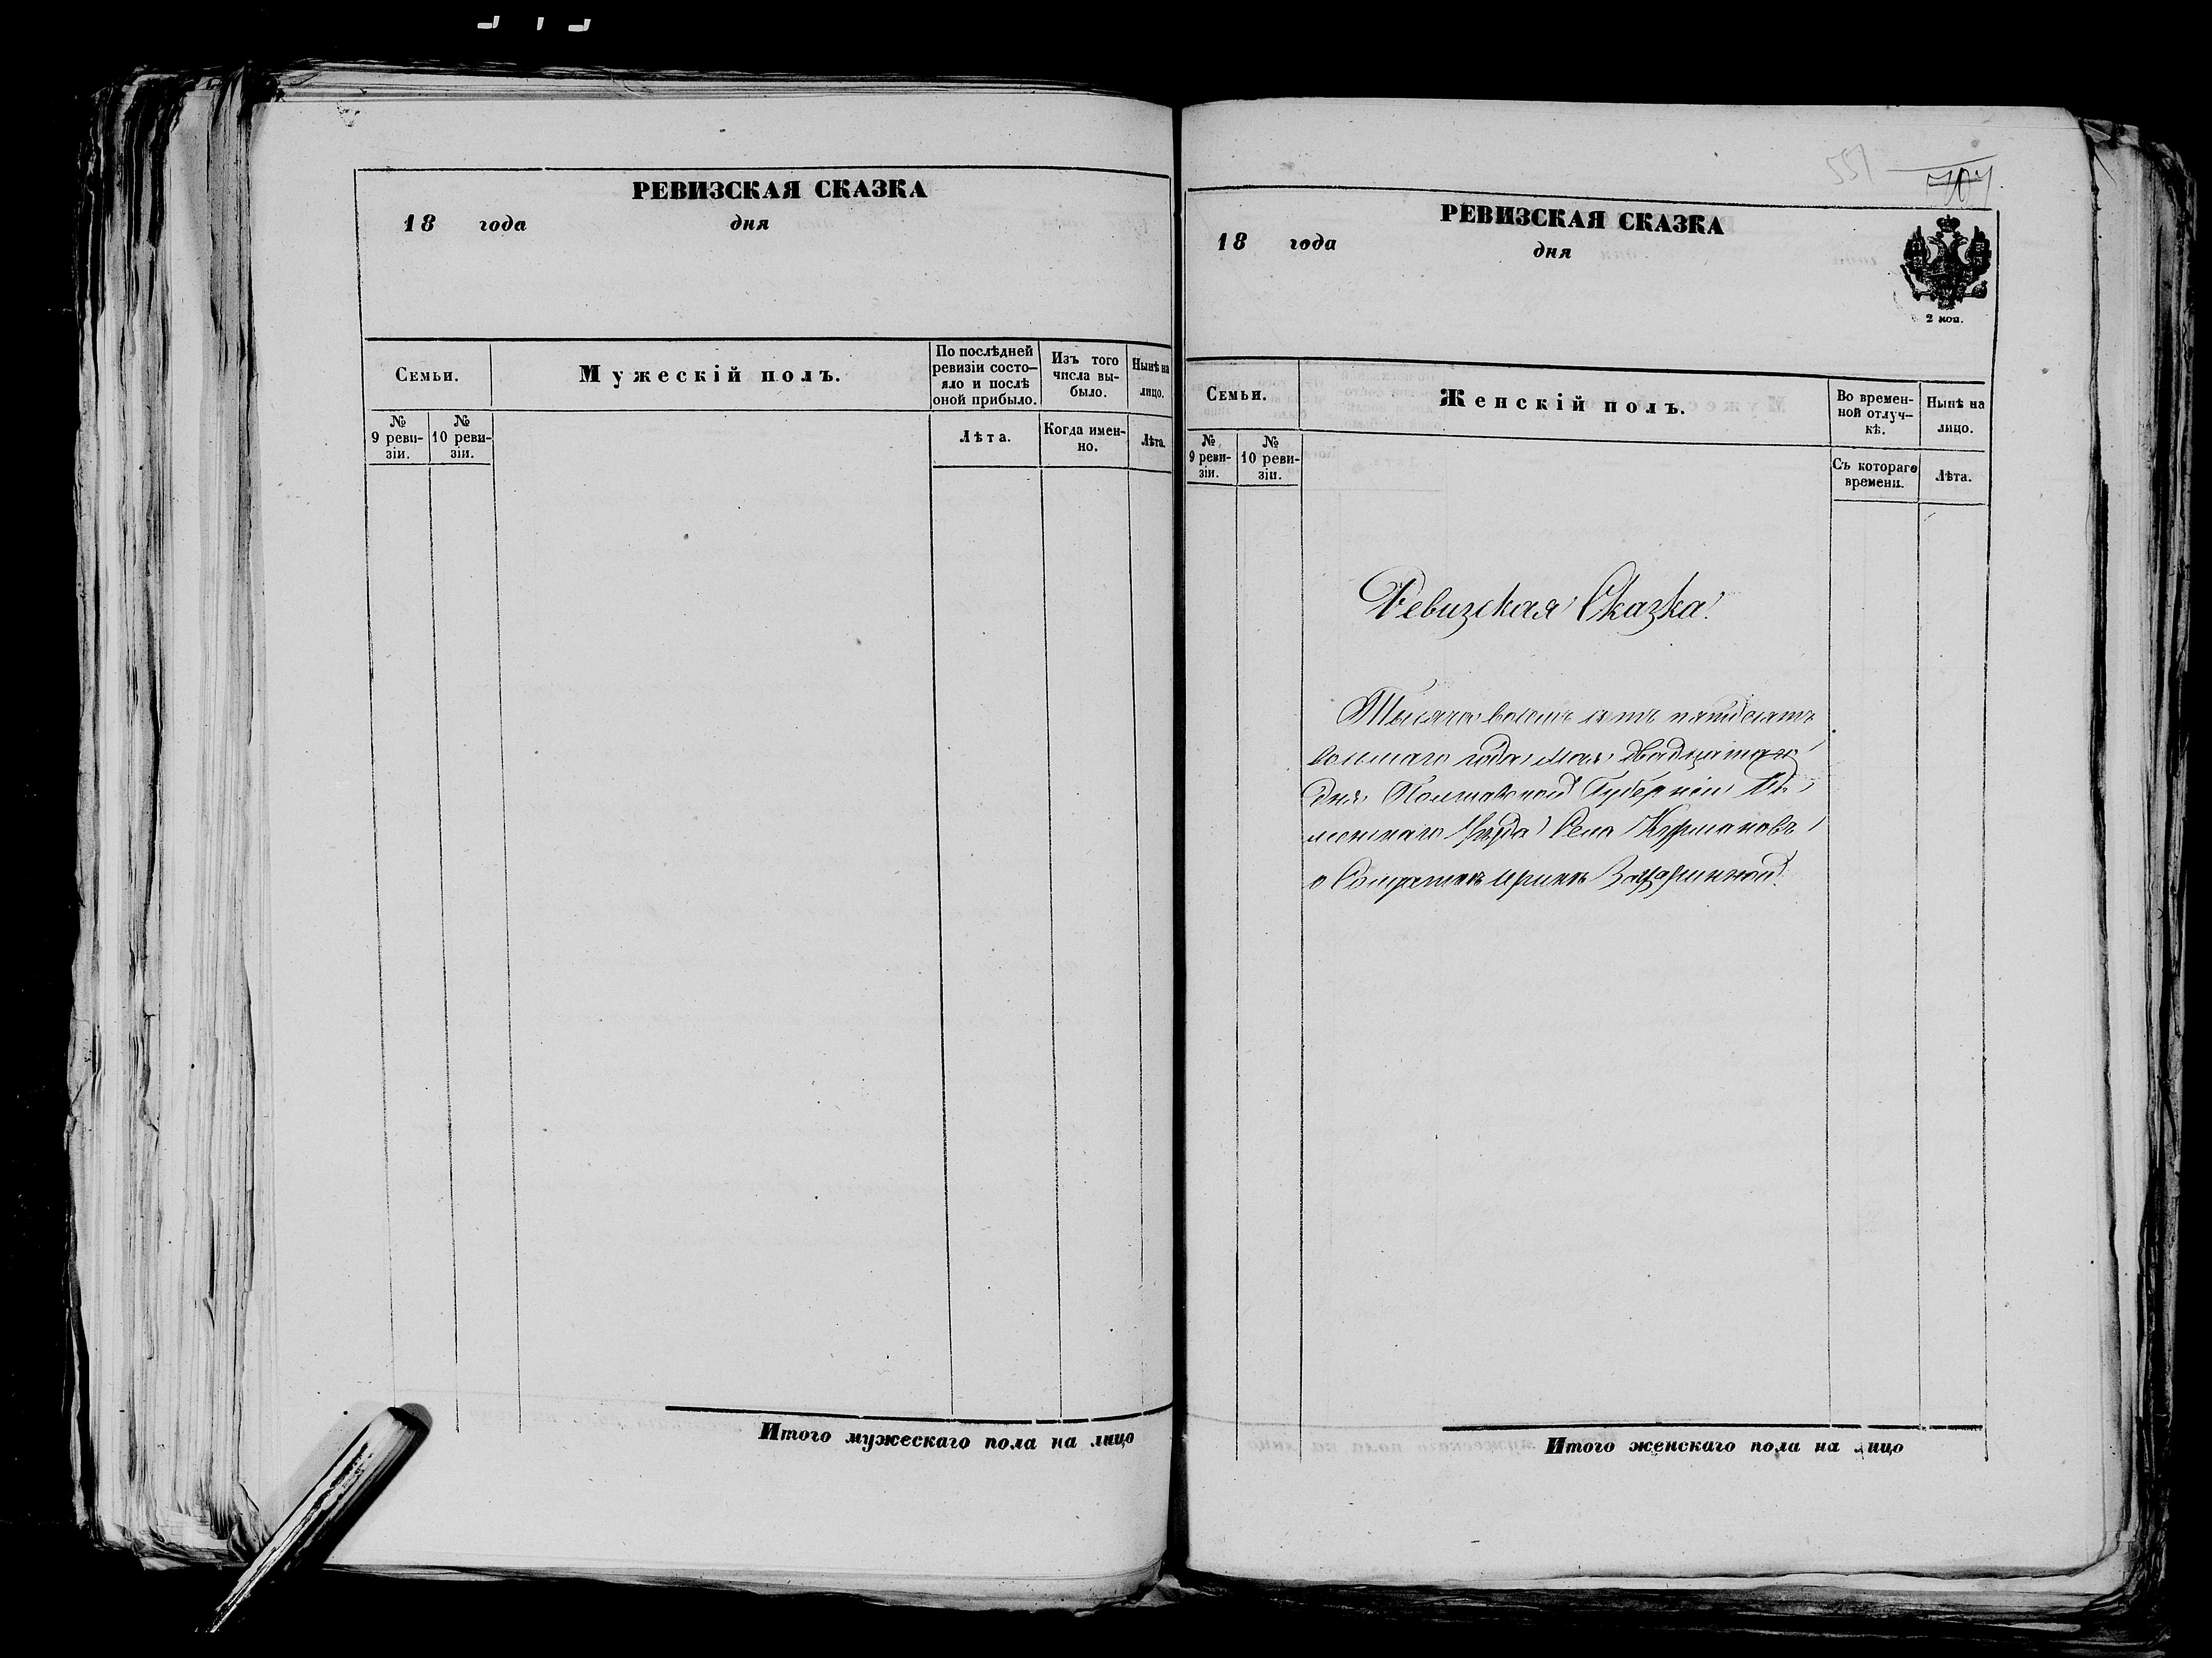 РЕВИЗСКАЯ СКАЗКА
18 года дня
Семьи.
Мужескій полъ.
По послѣдней ревизіи состо—яло и послѣ оной прибыло.
Изъ того числа вы-было.
Нынѣ на лицо.
№ 9 реви-зіи.
№ 10 реви-зіи.
Лѣта.
Когда имен-но.
Лѣта.
Итого мужескаго пола на лицо
551
РЕВИЗСКАЯ СКАЗКА
18 года дня
2 коп.
Семьи.
Женскій полъ.
Во времен-ной отлуч—кѣ.
Нынѣ на лицо.
№ 9 реви-зіи.
№ 10 реви-зіи.
Съ котораго времени.
Лѣта.
Ревизская Сказка.
Тысяча восемь сотъ пятдесятъ
восмаго года мая двадцатаго
дня Полтавской Губерніи
Уѣзда Села Курмановъ
о Солдаткѣ Иринѣ
Итого женскаго пола на лицо